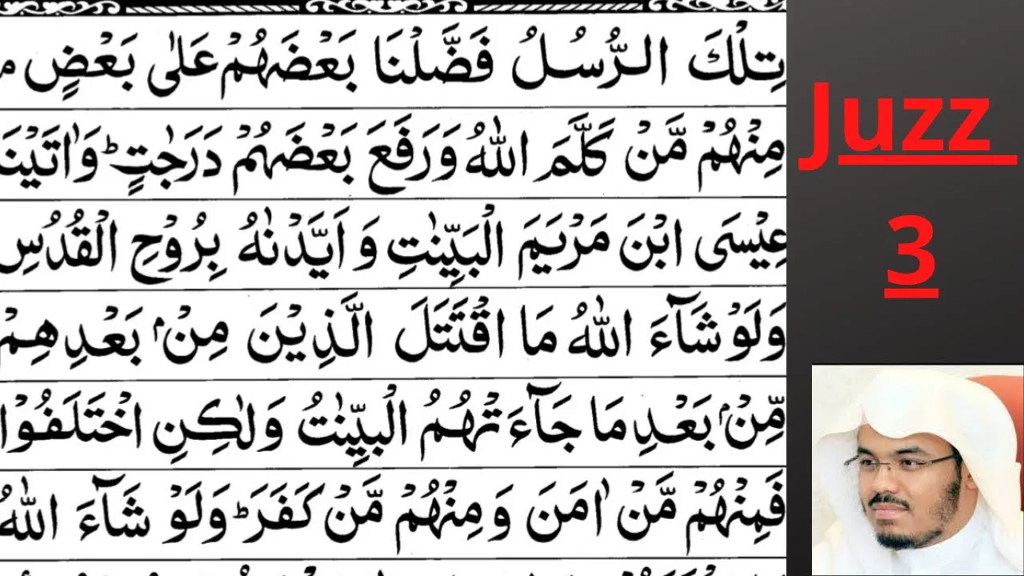 تِلْكَ الرُّسُلُ فَضَّلْنَا بَعْضَهُمْ عَلٰى بَعْضٍ
مِنْهُمْ مَّنْ كَلَّمَ اللّٰهُ وَرَفَعَ بَعْضَهُمْ دَرَجٰتٍ ؕ وَاٰتَيْنَ
عِيْسَى ابْنَ مَرْيَمَ الْبَيِّنٰتِ وَ اَيَّدْنٰهُ بِرُوْحِ الْقُدُسِ
وَلَوْ شَآءَ اللّٰهُ مَا اقْتَتَلَ الَّذِيْنَ مِنْۢ بَعْدِهِمْ
مِّنْۢ بَعْدِ مَا جَآءَتْهُمُ الْبَيِّنٰتُ وَلٰكِنِ اخْتَلَفُوْا
فَمِنْهُمْ مَّنْ اٰمَنَ وَ مِنْهُمْ مَّنْ كَفَرَ ؕ وَلَوْ شَآءَ اللّٰهُ
Juzz
3